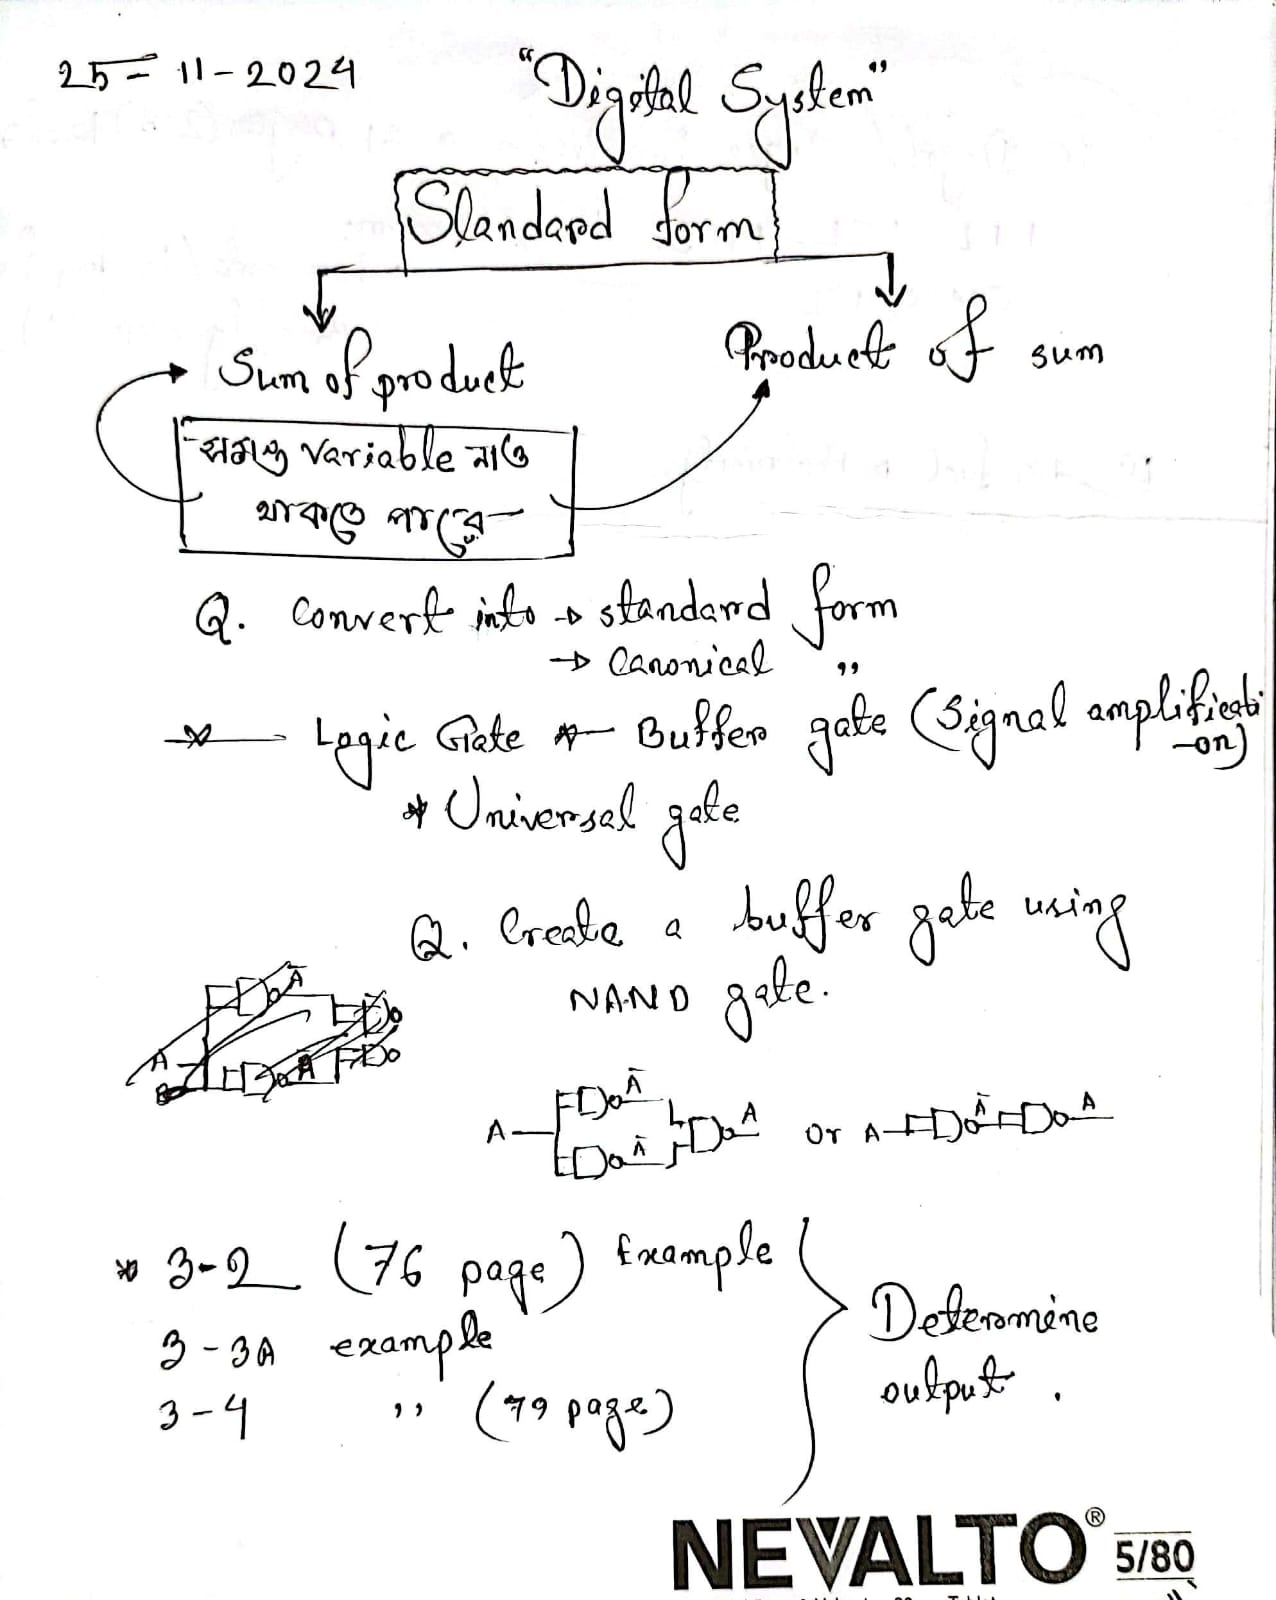 25-11-2024 "Digital System"
Standard form
Sum of product
Product of sum
সমস্ত variable নাও
থাকতে পারে-
Q. Convert into → standard form
→ Canonical ,,
* Logic Gate * Buffer gate (Signal amplificati
-on)
* Universal gate
Q. Create a buffer gate using
NAND gate.
A Ā Ā A or A Ā A
* 3-2 (76 page) Example
3-3A example
3-4 ,, (79 page)
Determine
output.
NEVALTO® 5/80